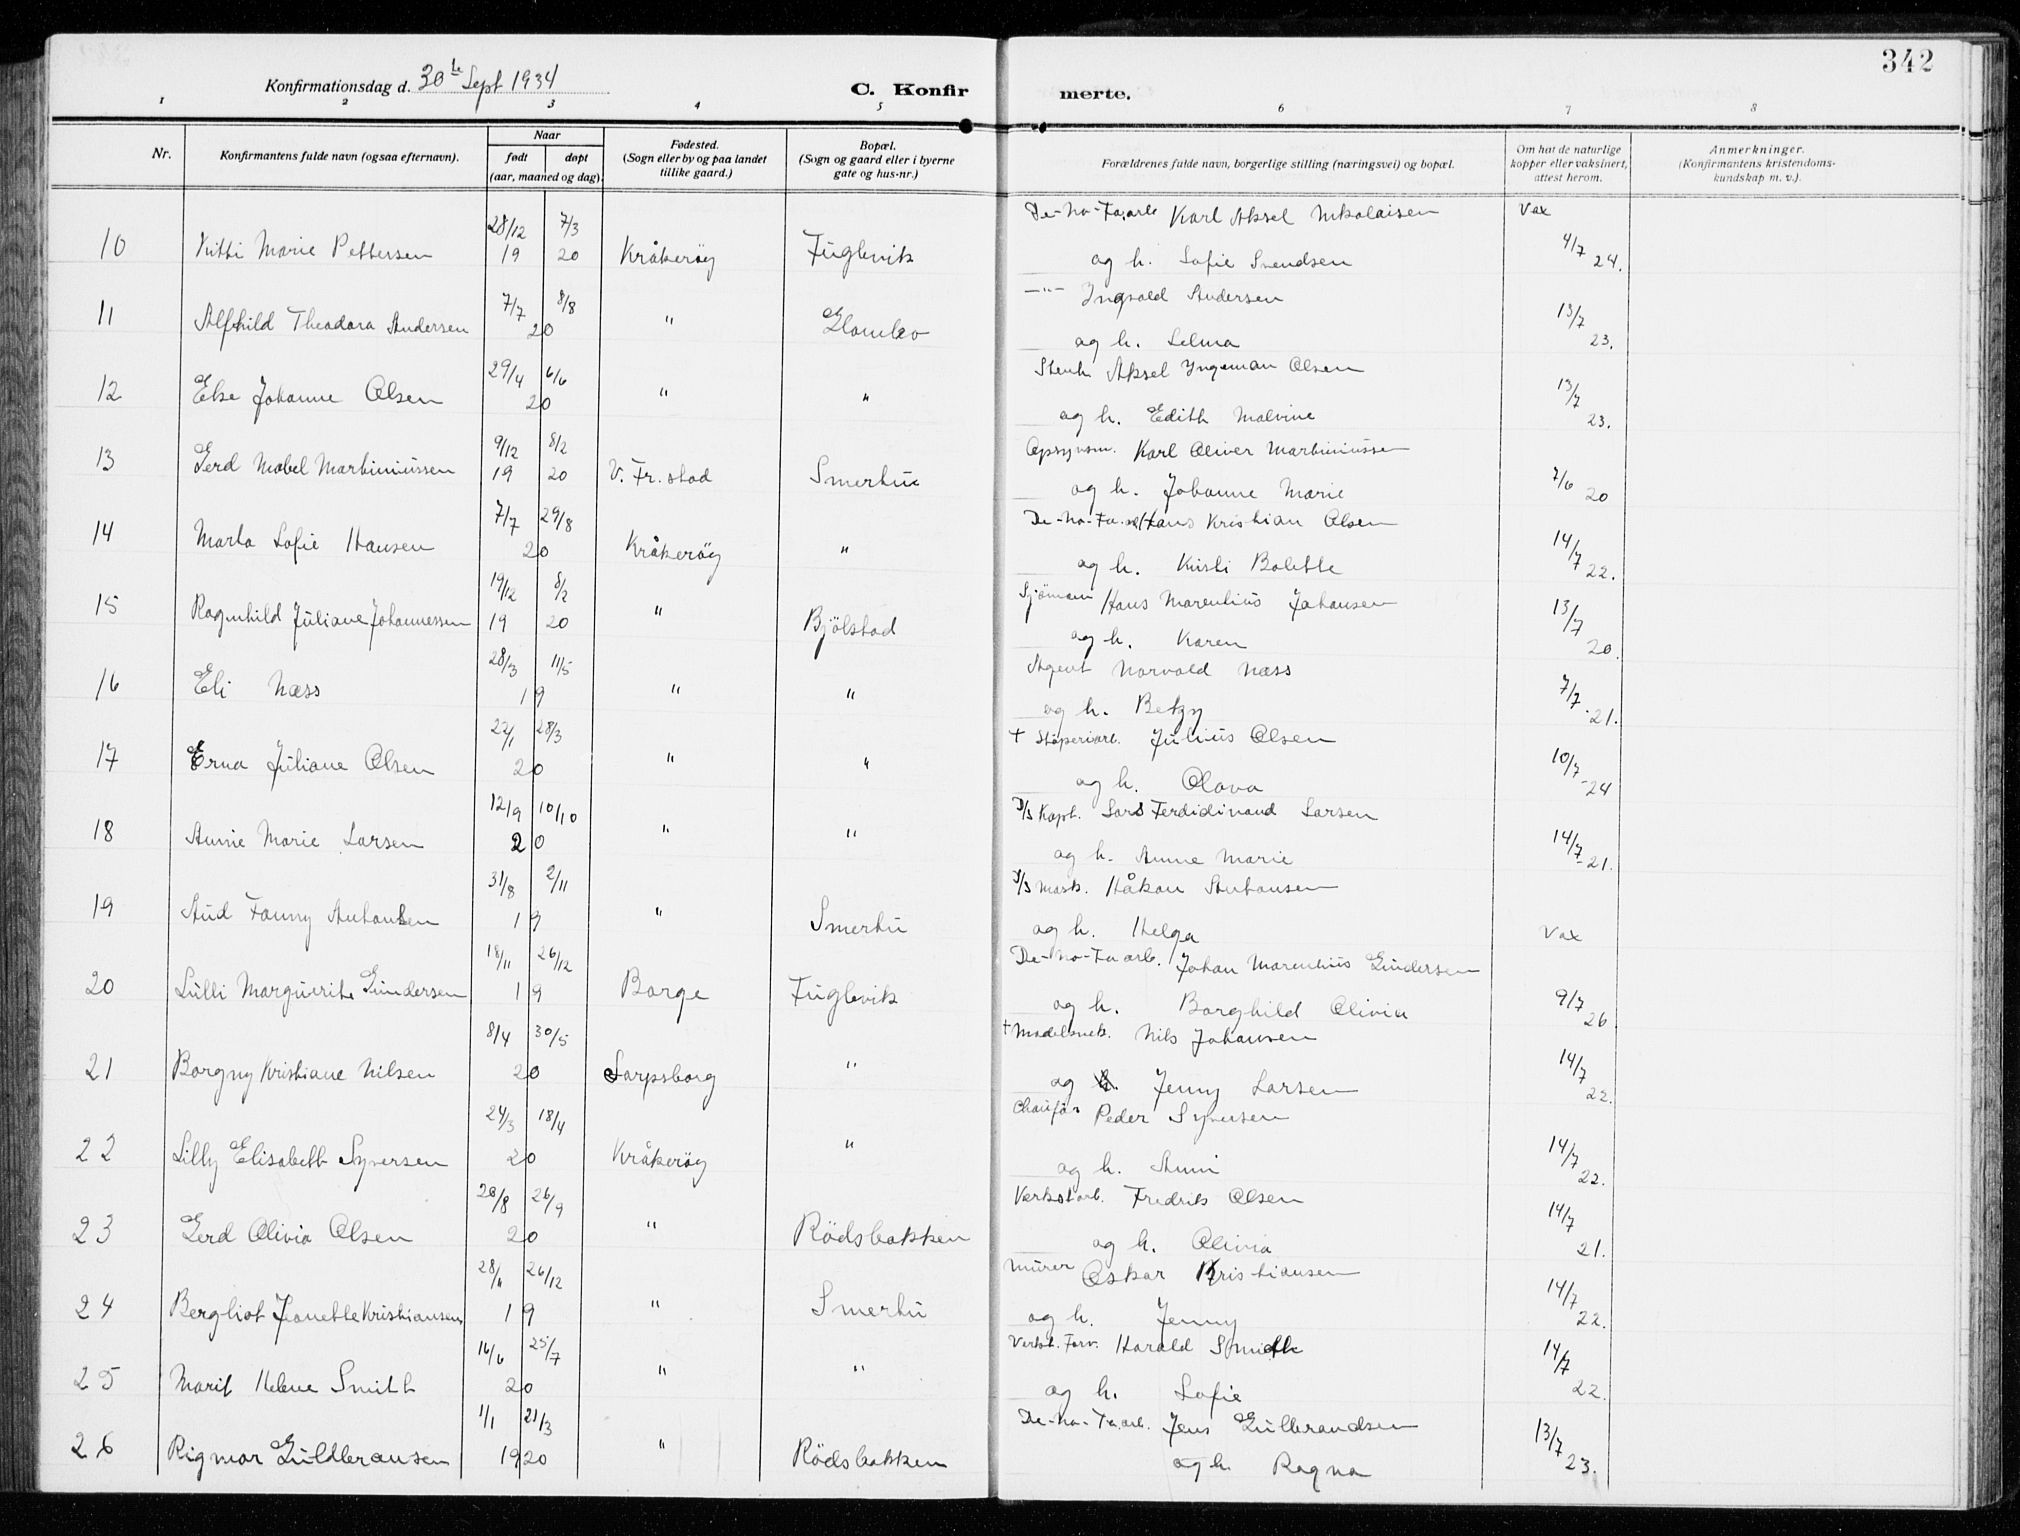 342
Konfirmationsdag d. 30te Sept 1934
C. Konfirmerte.
1 2 3 4 5 6 7 8
Nr.
Konfirmantens fulde navn (ogsaa efternavn).
Naar
født døpt
(aar, maaned og dag).
Fødested.
(Sogn eller by og paa landet
tillike gaard.)
Bopæl.
(Sogn og gaard eller i byerne
gate og hus-nr.)
Forældrenes fulde navn, borgerlige stilling (næringsvei) og bopæl.
Om hat de naturlige
kopper eller vaksinert,
attest herom.
Anmerkninger.
(Konfirmantens kristendoms-
kundskap m. v.).
28/12 7/3 De-No-Fa.arb. Karl Aksel Nikolaisen Vax
10 Kitti Marie Pettersen 19 20 Kråkeröy Fuglevik og h. Sofie Svendsen 4/7 24.
7/7 8/8 -"- Ingvald Andersen
11 Alfhild Theodora Andersen 20 " Glombo og h. Selma 13/7 23.
29/4 6/6 Aksel Ingeman Olsen
12 Else Johanne Olsen 20 " " og h. Edith Malvine 13/7 23.
9/12 8/2 Opsynsm. Karl Oliver Martiniussen
13 Gerd Mabel Martiniussen 19 20 V. Fr.stad Smertu og h. Johanne Marie 7/6 20
7/7 29/8 De-No-Fa.arb. Hans Kristian Olsen
14 Marta Sofie Hansen 20 Kråkeröy " og h. Kirsti Bolette 14/7 22.
19/12 8/2 Sjömann Hans Marentius Johansen
15 Ragnhild Juliane Johannessen 19 20 " Bjölstad og h. Karen 13/7 20.
28/3 11/5 Agent Norvald Næss
16 Eli Næss 19 " " og h. Betzy 7/7-21.
22/1 28/3 † Stöperiarb. Julius Olsen
17 Erna Juliane Olsen 20 " " og h. Olava 10/7-24
12/9 10/10 D/S Kapt. Lars Ferdidinand Larsen
18 Annie Marie Larsen 20 " " og h. Anne Marie 14/7-21.
31/8 2/11 D/S Mask. Håkon Antonsen
19 Aud Fanny Antonsen 19 " Smertu og h. Helga Vax
18/11 26/12 De-No-Fa.arb. Johan Marentius Gundersen
20 Lulli Marguerite Gundersen 19 Borge Fuglevik og h. Borghild Olivia 9/7 26
8/4 30/5 † Modelsnek. Nils Johansen
21 Borgny Kristiane Nilsen 20 Sarpsborg " og h. Jenny Larsen 14/7 22.
24/3 18/4 Chauför Peder Syversen
22 Lilly Elisabeth Syversen 20 Kråkeröy " og h. Anni 14/7 22.
20/8 26/9 Verkst.arb. Fredrik Olsen
23 Gerd Olivia Olsen 20 " Rödsbakken og h. Olivia 14/7 21.
28/11 26/12 Murer Oskar Kristiansen
24 Bergliot Jeanette Kristiansen 19 " Smertu og h. Jenny 14/7 22.
16/6 25/7 Verkst. Forv. Harald Smith
25 Marit Helene Smith 20 " " og h. Sofie 14/7 22.
1/1 21/3 De-No-Fa.arb. Jens Gulbrandsen
26 Rigmor Guldbransen 1920 " Rödsbakken og h. Ragna 13/7 23.